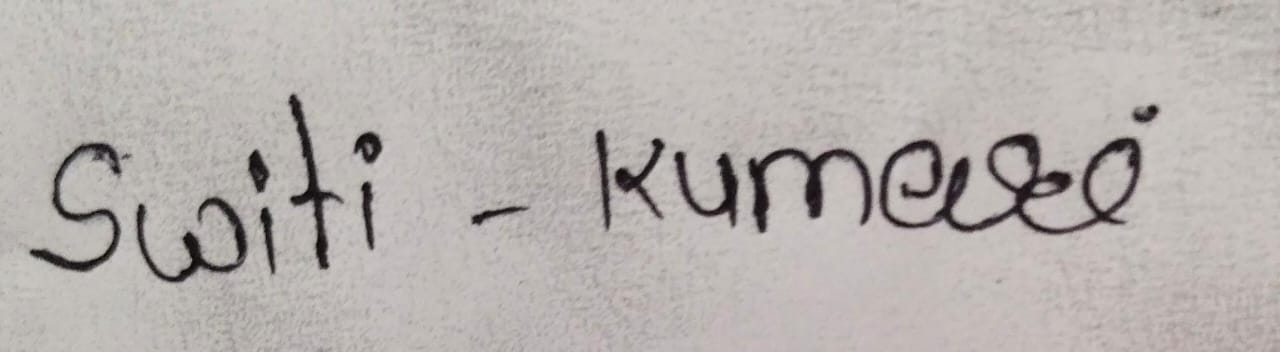 Switi - Kumari